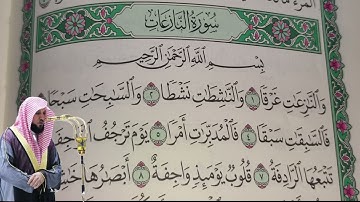 سُورَةُ النَّازِعَاتِ
بِسْمِ اللَّهِ الرَّحْمَٰنِ الرَّحِيمِ
وَالنَّٰزِعَٰتِ غَرْقًا ١ وَالنَّٰشِطَٰتِ نَشْطًا ٢ وَالسَّٰبِحَٰتِ سَبْحًا
فَالسَّٰبِقَٰتِ سَبْقًا ٤ فَالْمُدَبِّرَٰتِ أَمْرًا ٥ يَوْمَ تَرْجُفُ
تَتْبَعُهَا الرَّادِفَةُ ٧ قُلُوبٌ يَوْمَئِذٍ وَاجِفَةٌ ٨ أَبْصَٰرُهَا